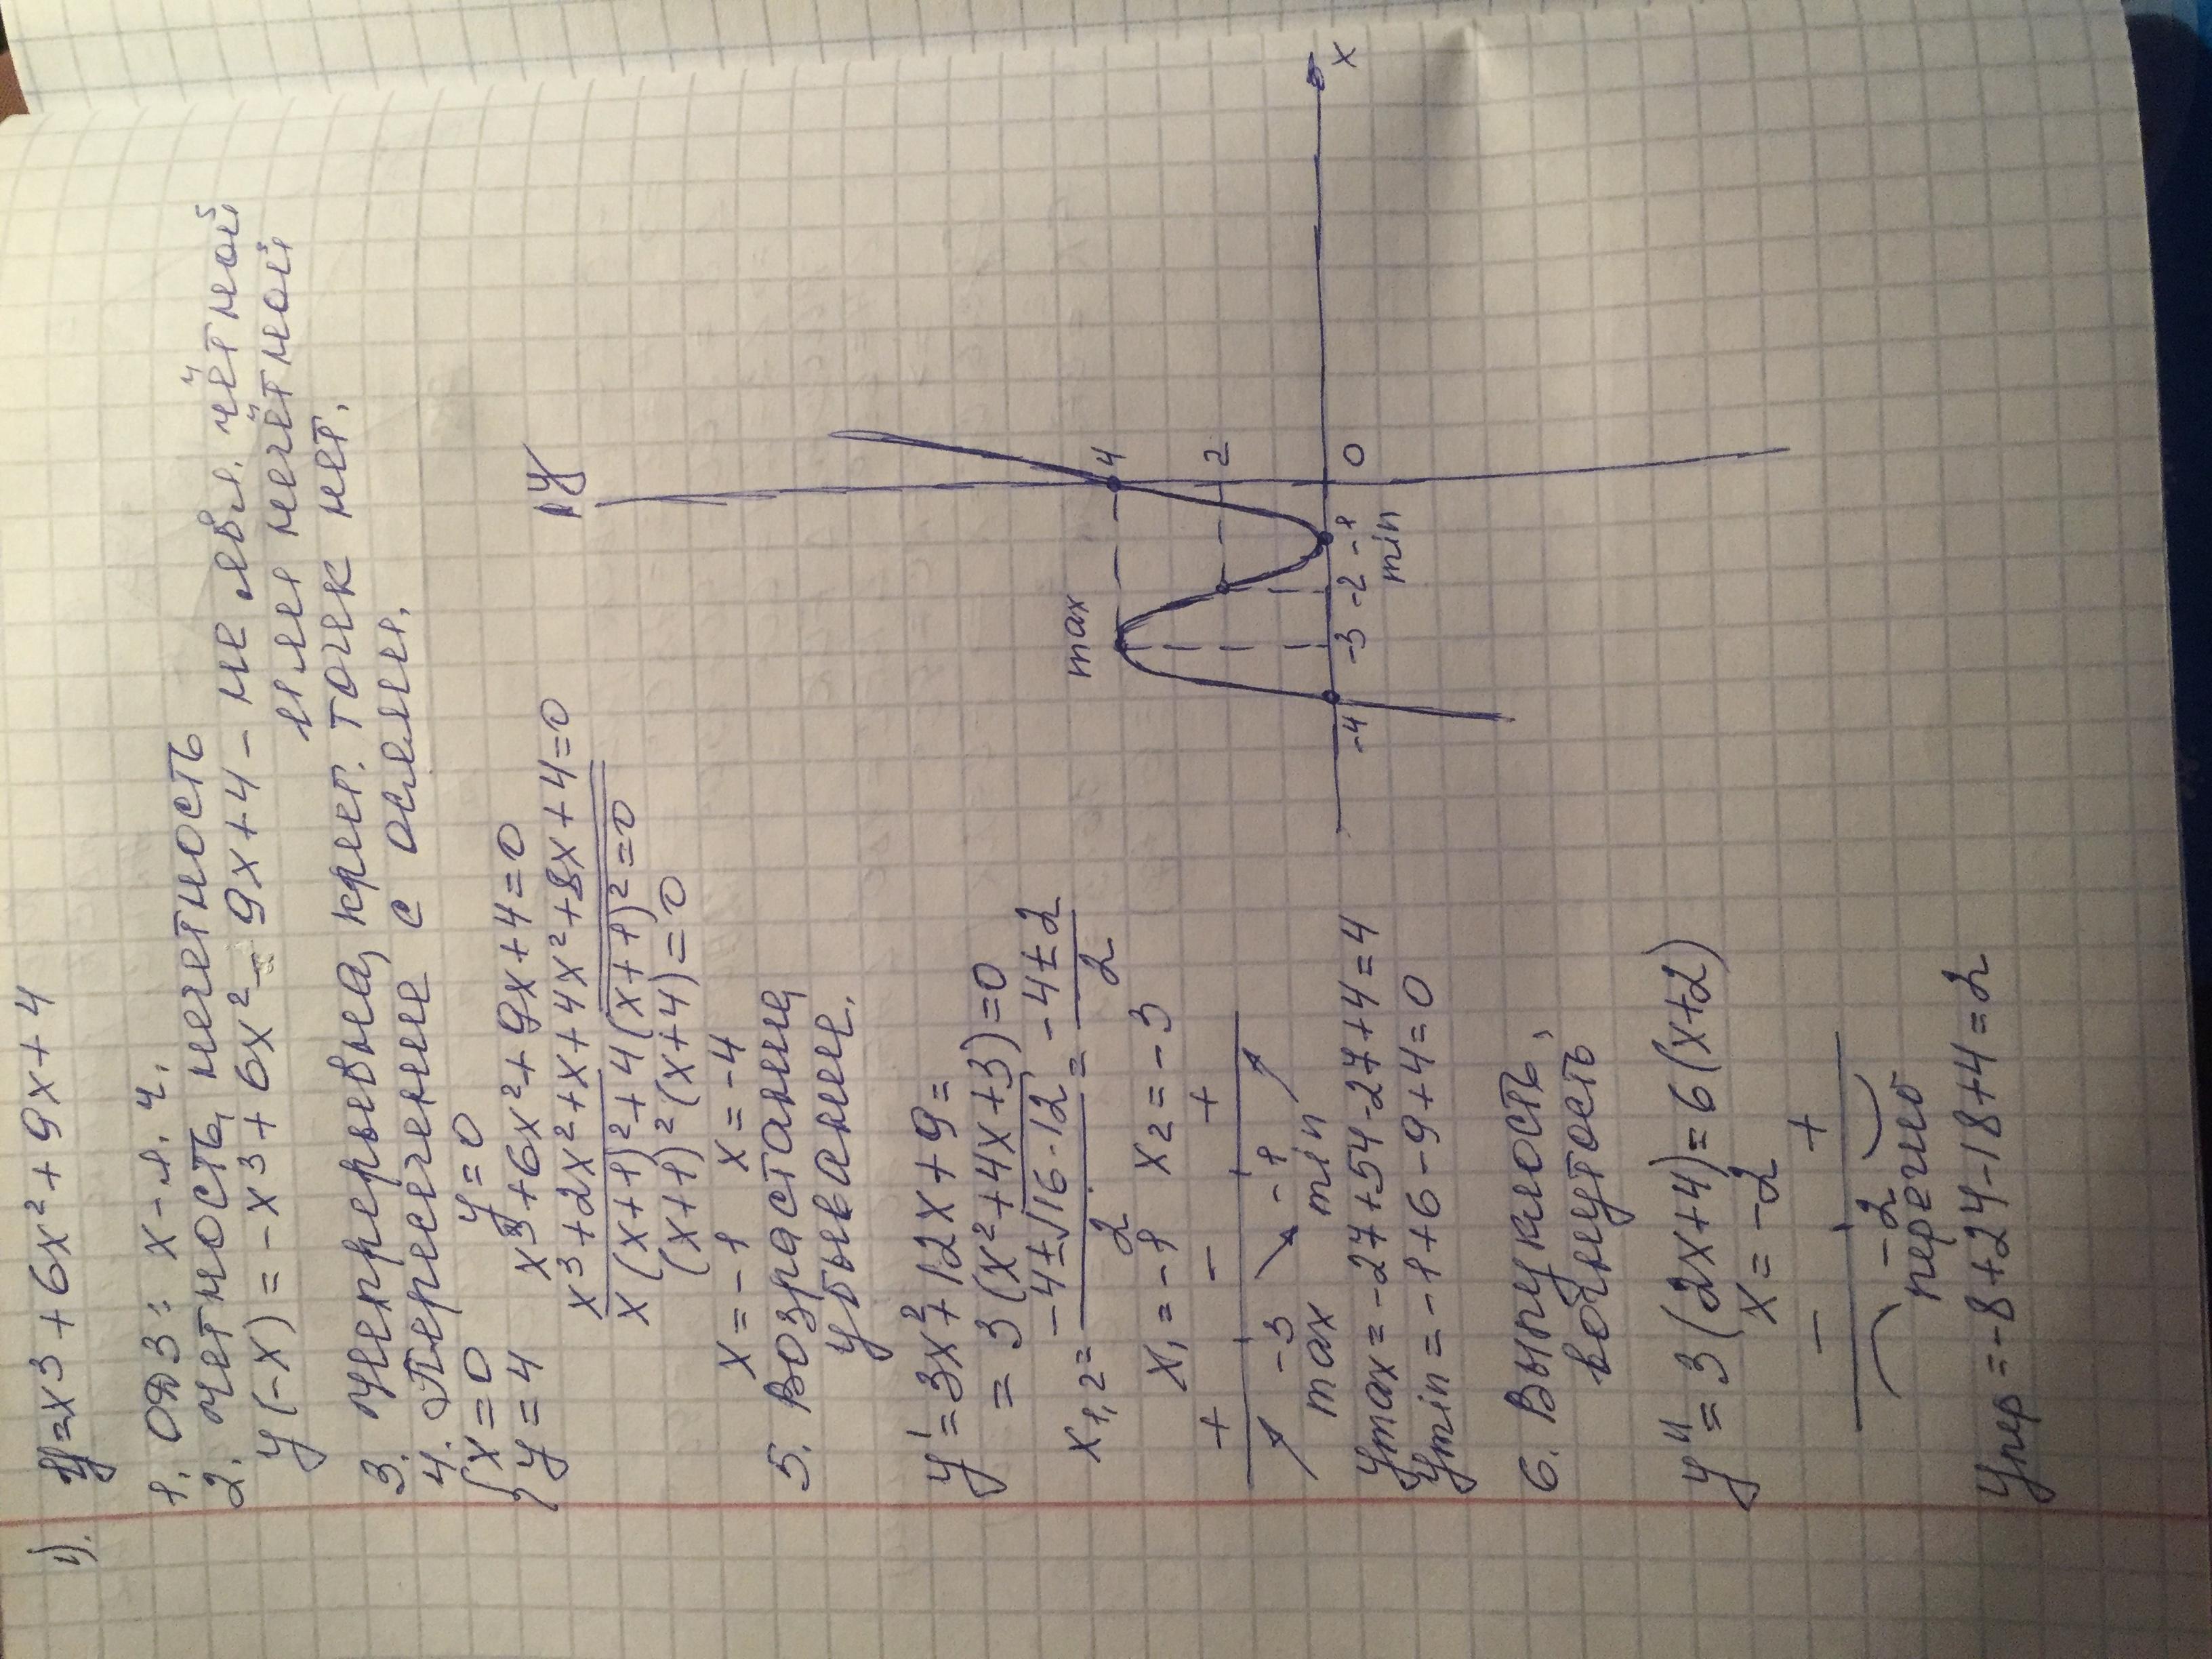 1). y=x3+6x²+9x+4
1. ОДЗ: x-л.ч.
2. четность, нечетность
y(-x)=-x3+6x²-9x+4- не явл. чётной
или нечётной
3. Непрерывна, крит. точек нет.
4. Пересечение с осями.
{x=0 y=0
{y=4 x3+6x²+9x+4=0
x3+2x²+x+4x²+8x+4=0
x(x+1)²+4(x+1)²=0
(x+1)²(x+4)=0
x=-1 x=-4
5. Возрастание,
убывание.
y'=3x²+12x+9=
=3(x²+4x+3)=0
x1,2=(-4±√16-12)/2=(-4±2)/2
x1=-1 x2=-3
+ - +
-3 -1
max min
ymax=-27+54-27+4=4
ymin=-1+6-9+4=0
6. Выпуклость,
вогнутость
y''=3(2x+4)=6(x+2)
x=-2
- +
-2
перегиб
yпер=-8+24-18+4=2
y
max
4
2
-4 -3 -2 -1 0 x
min